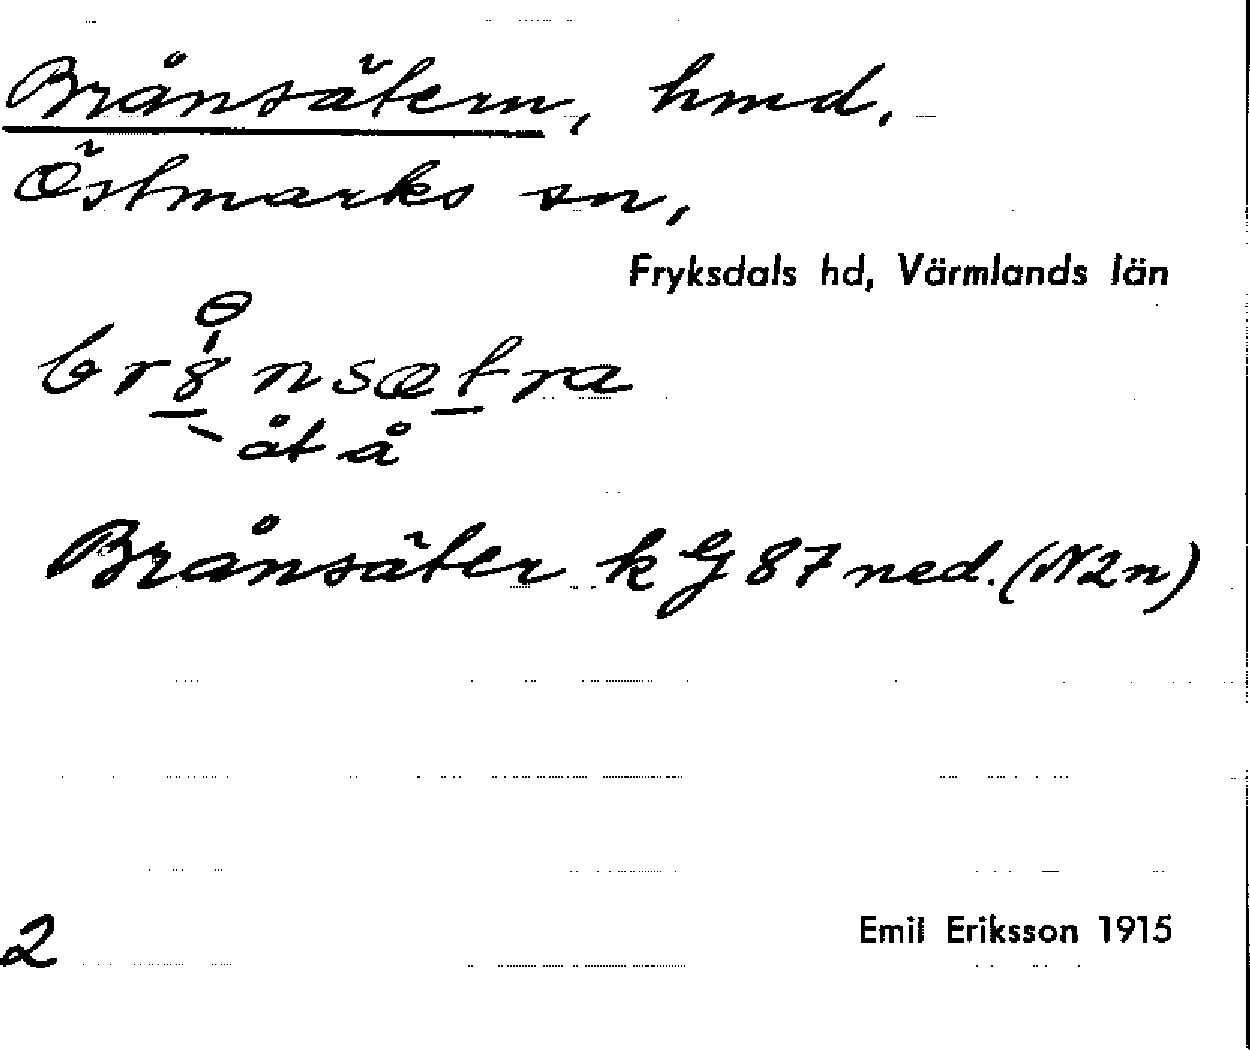 Brånsätern, hmd.
Östmarks sn,
Fryksdals hd, Värmlands län
åt å
Brånsäter k G 87 ned. (N2n)
2
Emil Eriksson 1915